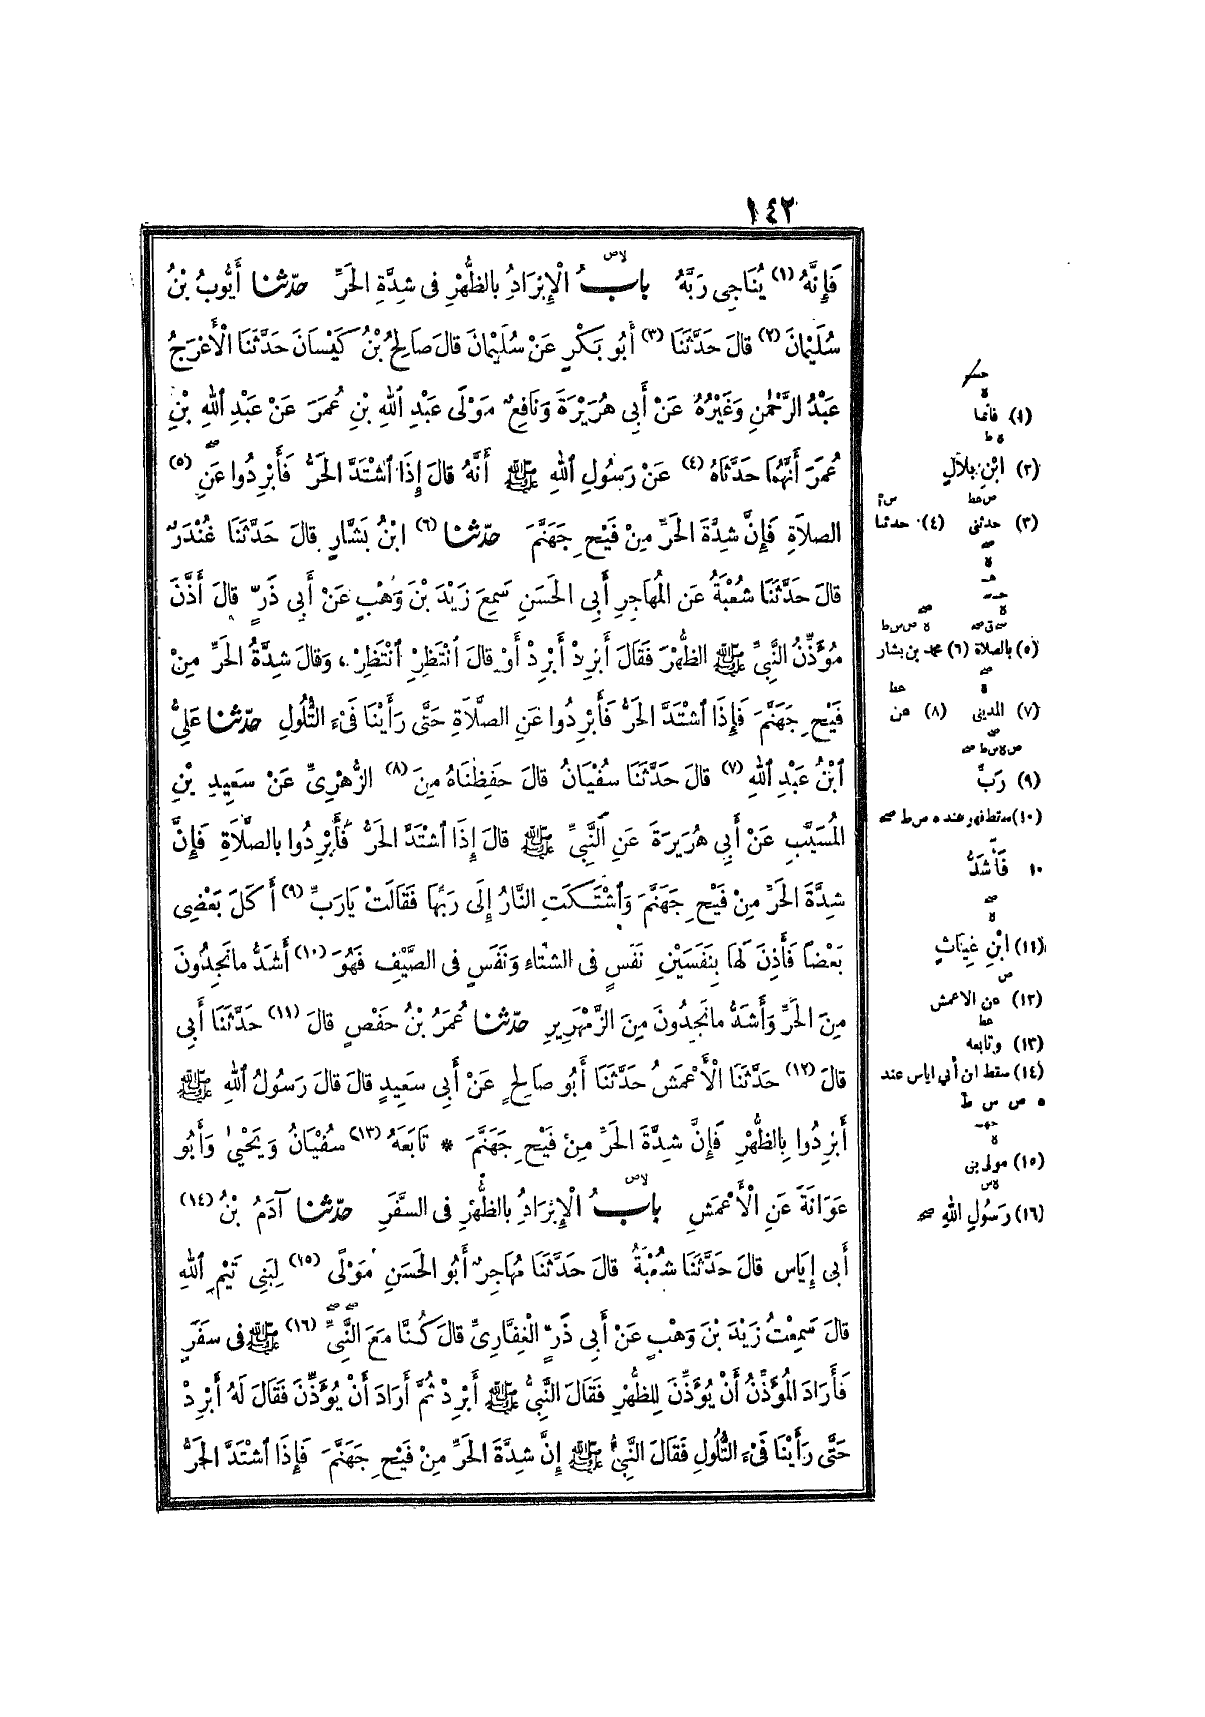 ١٤٢
فَإِنَّهُ (١) يُنَاجِى رَبَّهُ بابُ الْإِبْرَادُ بِالظُّهْرِ فى شِدَّةِ الحَرِّ حدّثنا أَيُّوبُ بْنُ
سُلَيْمَانَ (٢) قالَ حَدَّثَنَا (٣) أَبُو بَكْرٍ عَنْ سُلَيْمَانَ قالَ صَالِحُ بْنُ كَيْسَانَ حَدَّثَنَا الْأَعْرَجُ
عَبْدُ الرَّحْمٰنِ وَغَيْرُهُ عَنْ أَبِى هُرَيْرَةَ وَنَافِعٌ مَوْلَى عَبْدِ اللهِ بْنِ عُمَرَ عَنْ عَبْدِ اللهِ بْنِ
عُمَرَ أَنَّهُمَا حَدَّثَاهُ (٤) عَنْ رَسُولِ اللهِ ﷺ أَنَّهُ قالَ إِذَا اشْتَدَّ الحَرُّ فَأَبْرِدُوا عَنِ (٥)
الصلاَةِ فَإِنَّ شِدَّةَ الحَرِّ مِنْ فَيْحِ جَهَنَّمَ حدّثنا (٦) ابْنُ بَشَّارٍ قالَ حَدَّثَنَا غُنْدَرٌ
قالَ حَدَّثَنَا شُعْبَةُ عَنِ المُهَاجِرِ أَبِى الحَسَنِ سَمِعَ زَيْدَ بْنَ وَهْبٍ عَنْ أَبِى ذَرٍّ قالَ أَذَّنَ
مُؤَذِّنُ النَّبِىِّ ﷺ الظُّهْرَ فَقَالَ أَبْرِدْ أَبْرِدْ أَوْ قالَ انْتَظِرْ انْتَظِرْ، وَقالَ شِدَّةُ الحَرِّ مِنْ
فَيْحِ جَهَنَّمَ فَإِذَا اشْتَدَّ الحَرُّ فَأَبْرِدُوا عَنِ الصَّلاَةِ حَتَّى رَأَيْنَا فَىْءَ التُّلُولِ حدّثنا عَلِىُّ
ابْنُ عَبْدِ اللهِ (٧) قالَ حَدَّثَنَا سُفْيَانُ قالَ حَفِظْنَاهُ مِنَ (٨) الزُّهْرِىِّ عَنْ سَعِيدِ بْنِ
المُسَيَّبِ عَنْ أَبِى هُرَيْرَةَ عَنِ النَّبِىِّ ﷺ قالَ إِذَا اشْتَدَّ الحَرُّ فَأَبْرِدُوا بالصَّلاَةِ فَإِنَّ
شِدَّةَ الحَرِّ مِنْ فَيْحِ جَهَنَّمَ وَاشْتَكَتِ النَّارُ إِلَى رَبِّهَا فَقَالَتْ يَارَبِّ (٩) أَكَلَ بَعْضِى
بَعْضًا فَأَذِنَ لَهَا بِنَفَسَيْنِ نَفَسٍ فى الشتاء وَنَفَسٍ فى الصَّيْفِ فَهُوَ (١٠) أَشَدُّ مانَجِدُونَ
مِنَ الحَرِّ وَأَشَدُّ مانَجِدُونَ مِنَ الزَّمْهَرِيرِ حدّثنا عُمَرُ بْنُ حَفْصٍ قالَ (١١) حَدَّثَنَا أَبِى
قالَ (١٢) حَدَّثَنَا الْأَعْمَشُ حَدَّثَنَا أَبُو صالِحٍ عَنْ أَبِى سَعِيدٍ قالَ قالَ رَسُولُ اللهِ ﷺ
أَبْرِدُوا بِالظُّهْرِ فَإِنَّ شِدَّةَ الحَرِّ مِنْ فَيْحِ جَهَنَّمَ * تابَعَهُ (١٣) سُفْيَانُ وَيَحْيىٰ وَأَبُو
عَوَانَةَ عَنِ الْأَعْمَشِ بابُ الْإِبْرَادُ بِالظُّهْرِ فى السَّفَرِ حدّثنا آدَمُ بْنُ (١٤)
أَبِى إِيَاسٍ قالَ حَدَّثَنَا شُعْبَةُ قالَ حَدَّثَنَا مُهَاجِرٌ أَبُو الحَسَنِ مَوْلًى (١٥) لِبَنِى تَيْمِ اللهِ
قالَ سَمِعْتُ زَيْدَ بْنَ وَهْبٍ عَنْ أَبِى ذَرٍّ الْغِفَارِىِّ قالَ كُنَّا مَعَ النَّبِىِّ (١٦) ﷺ فى سَفَرٍ
فَأَرَادَ المُؤَذِّنُ أَنْ يُؤَذِّنَ لِلظُّهْرِ فَقَالَ النَّبِىُّ ﷺ أَبْرِدْ ثُمَّ أَرَادَ أَنْ يُؤَذِّنَ فَقَالَ لَهُ أَبْرِدْ
حَتَّى رَأَيْنَا فَىْءَ التُّلُولِ فَقَالَ النَّبِىُّ ﷺ إِنَّ شِدَّةَ الحَرِّ مِنْ فَيْحِ جَهَنَّمَ فَإِذَا اشْتَدَّ الحَرُّ
(١) فانما
(٢) ابْنِ بِلاَلٍ
(٣) حدثنى (٤) حدثنا
(٥) بالصلاة (٦) محمد بن بشار
(٧) المدينى (٨) عن
(٩) رَبِّ
(١٠) سقط فهو عند ه ص ط
١٠ فَأَشَدُّ
(١١) ابْنِ غِيَاثٍ
(١٢) عن الاعمش
(١٣) وتابعه
(١٤) سقط ابن أبى اياس عند
ه ص س ط
(١٥) مولى بنى
(١٦) رَسُولِ اللهِ